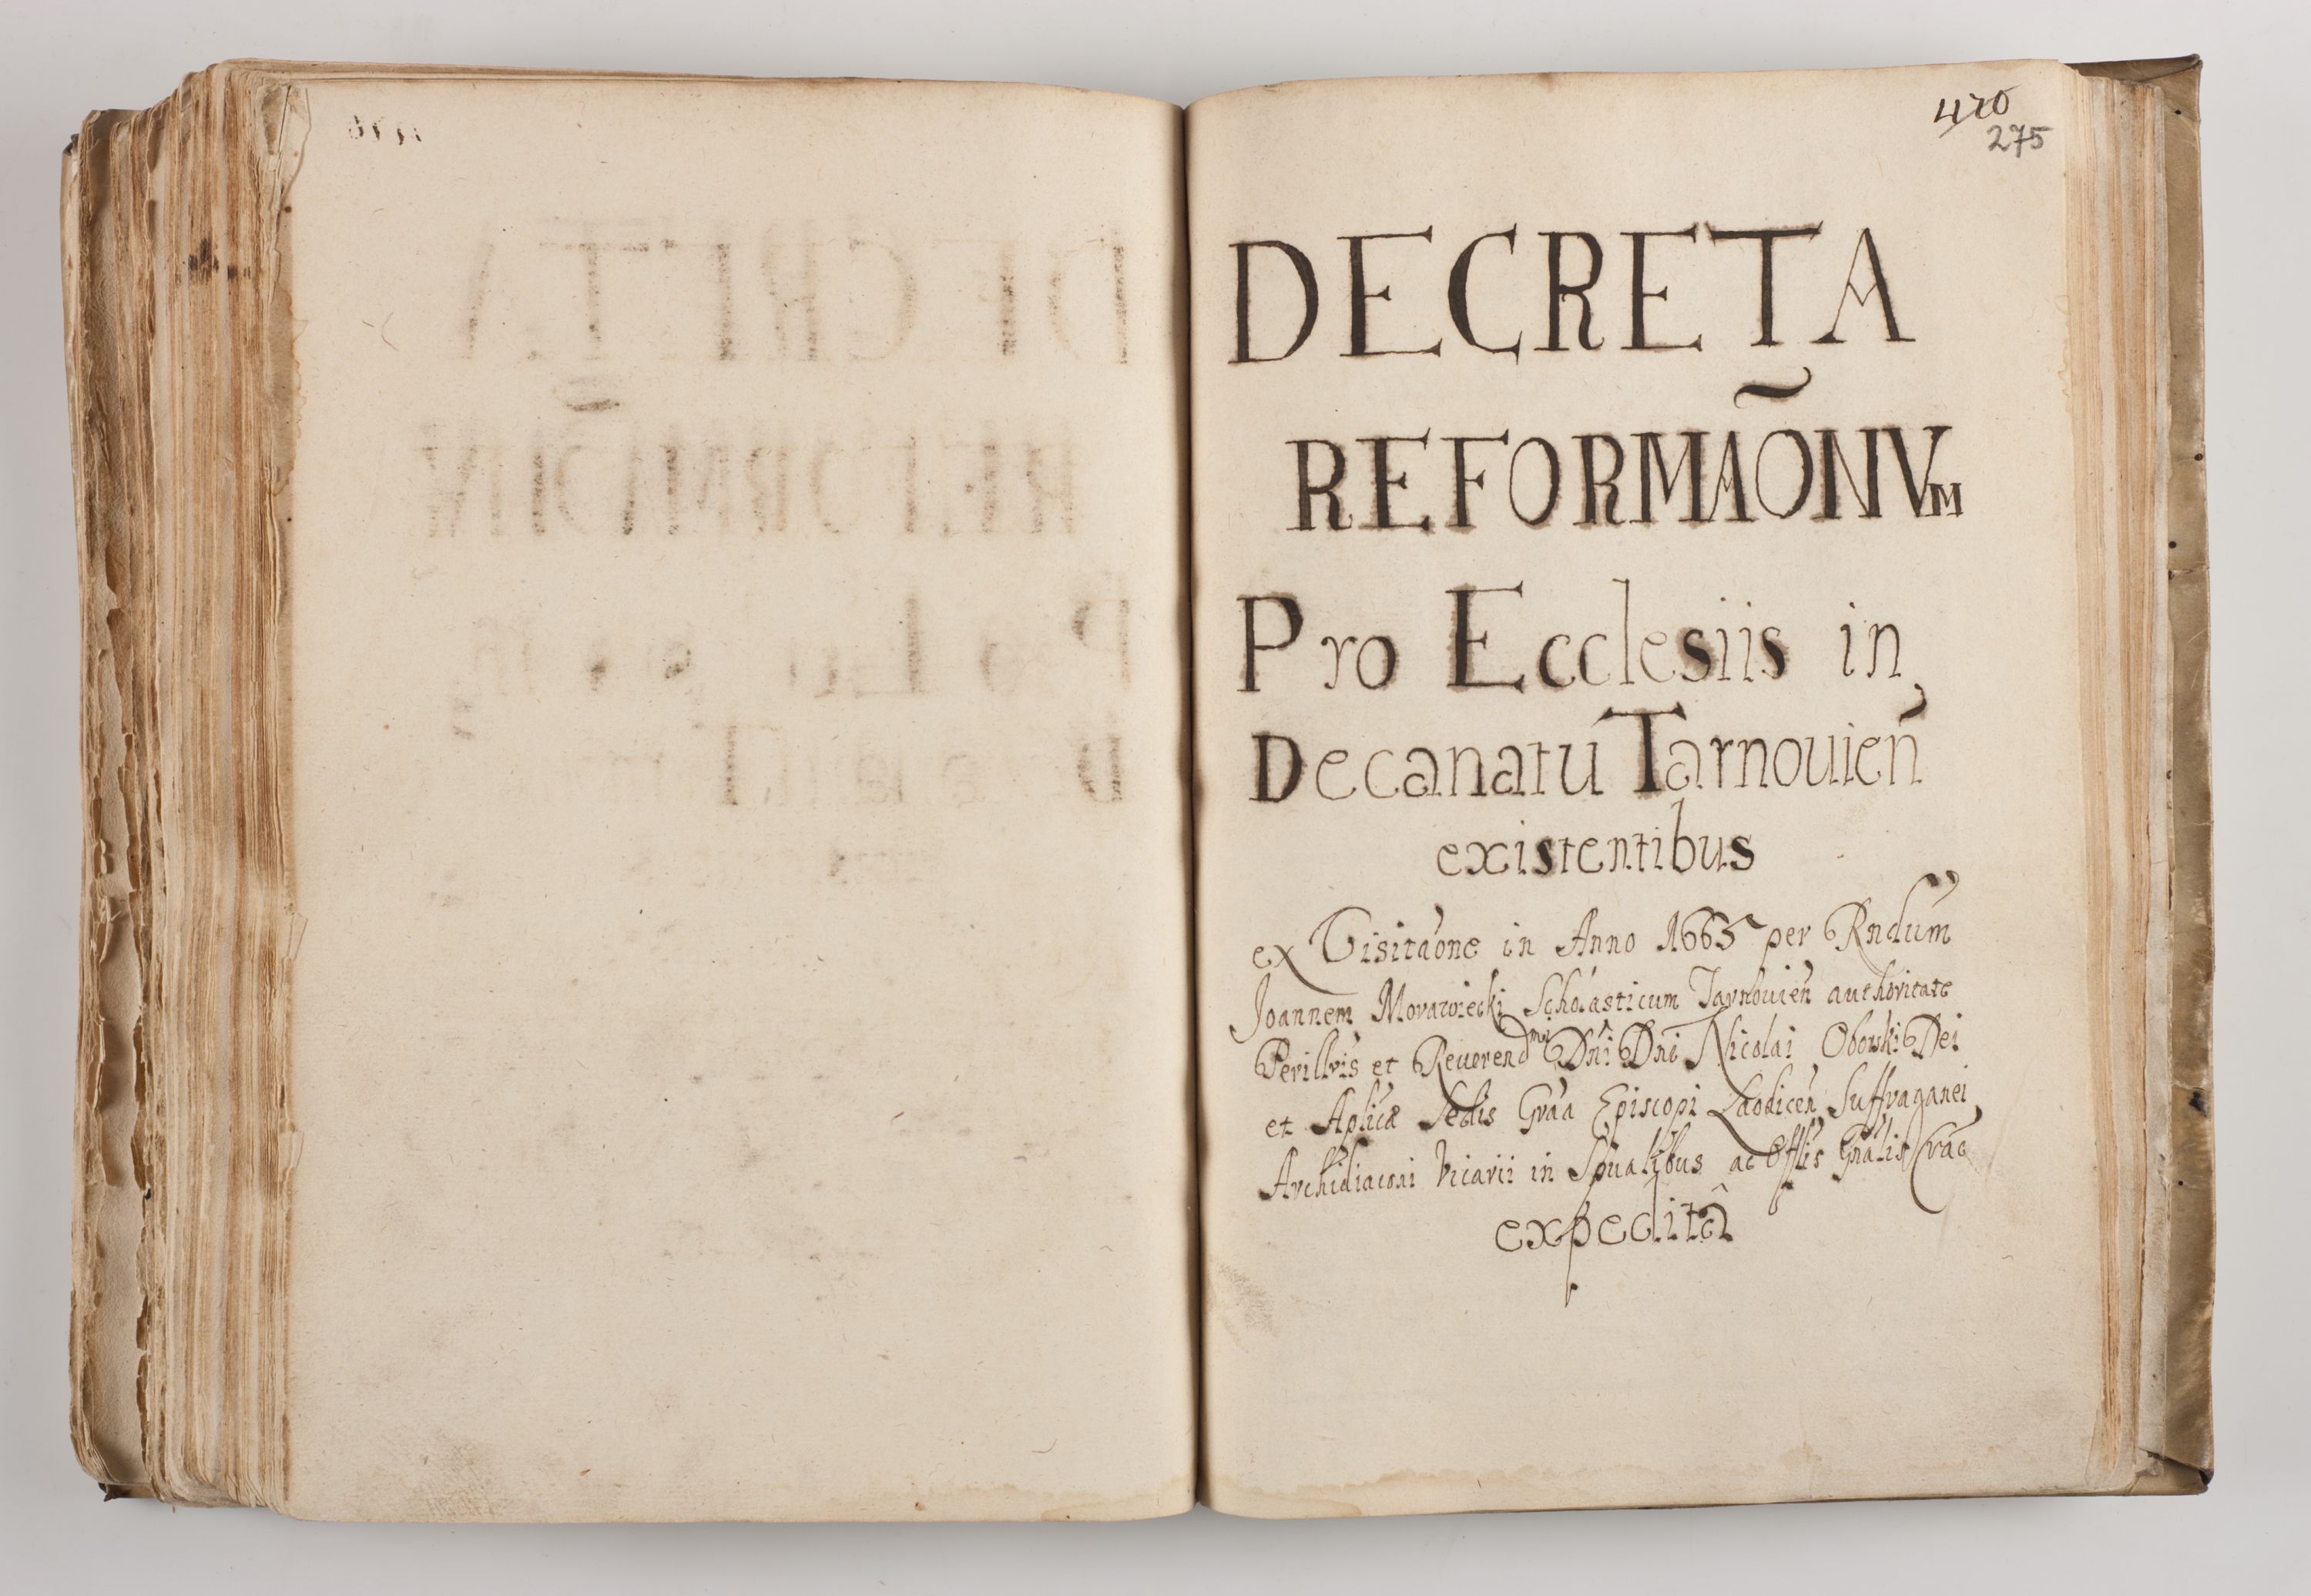 420
275
DECRETA
REFORMAÕNVM
Pro Ecclesiis in
Decanatu Tarnouień
existentibus
ex Visitaone in Anno 1665 per Rndum
Joannem Morawiecki Scholasticum Tarnouień authoritate
Perillris et Reverendmi Dni Dni Nicolai Oborski Dei
et Aplicæ Sedis Graa Episcopi Laodiceń Suffraganei
Archidiaconi Vicarii in Spualibus ac Offlis Gnalis Crac
expeditâ